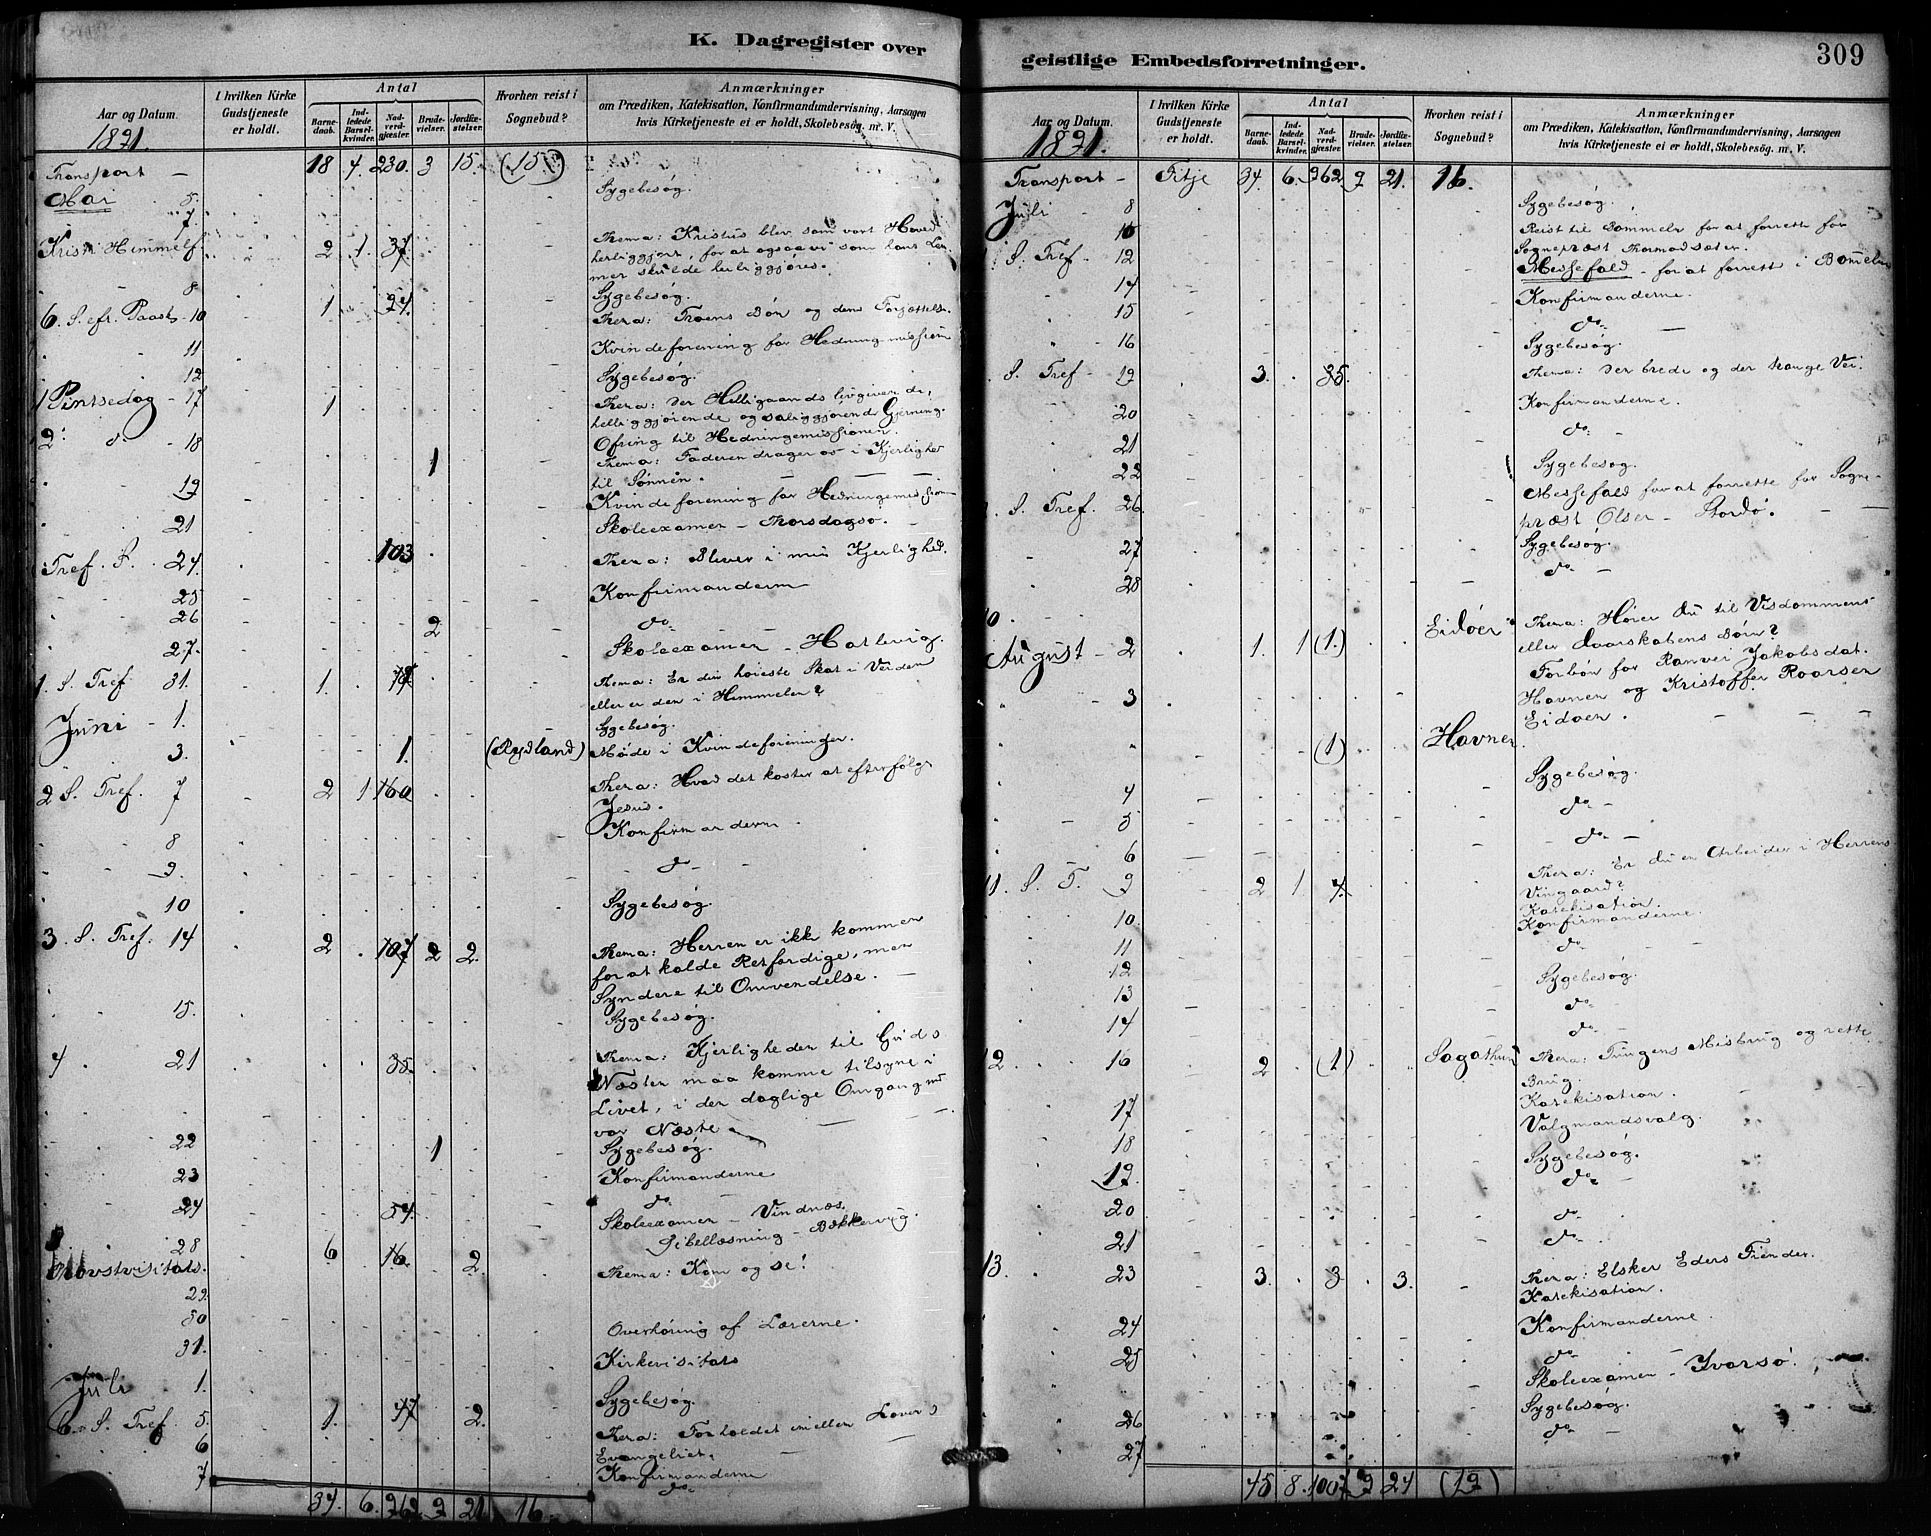 K. Dagregister over
Aar og Datum.
1891.
I hvilken Kirke Gudstjeneste er holdt.
Antal
Barnedaab.
Indledede Barselkvinder.
Nadverdgjæster.
Brudevielser.
Jordfæstelser.
Hvorhen reist i Sognebud?
Anmærkninger
om Prædiken, Katekisation, Konfirmandundervisning, Aarsagen
hvis Kirketjeneste ei er holdt, Skolebesøg. m. V.
Transport - 18 4. 230. 3 15. (15)
Mai 5. Sygebesøg.
7
Kristi Himmelf. 2 1 37. Thema: Kristus blev som vort Hoved
herliggjort, for at ogsaa vi som hans Lem
mer skulde herliggjøres.
8 Sygebesøg.
6. S. eftr. Paask 10 1 24. Thema: Troens Bøn og dens Forjættelse.
11 Kvindeforening for Hedningmissionen
12 Sygebesøg.
1 Pintsedag - 17 1 Thema: Den Helligaands livgivende,
helliggjørende og saliggjørende Gjerning.
Ofring til Hedningemissionen.
2 d. - 18 1 Thema: Faderen drager os i Kjerlighed
til Sønnen.
19 Kvindeforening for Hedningemissionen
21 Skoleexamen - Thorsdagsø. -
Tref. S. 24. 103 Thema: Bliver i min Kjerlighed.
25 Konfirmanderne
26 2 do
27. Skoleexamen - Hatlevig.
1. S. Tref 31. 1. Thema: Er din høieste Skat i Verden
eller er den i Himmelen?
Juni - 1. Sygebesøg.
3. 1. (Rydland) Møde i Kvindeforeninger.
2 S. Tref. 7 2 1 160 Thema: Hvad det koster at efterfølge
Jesus.
8 Konfirmanderne.
9. do -
10 Sygebesøg.
3. S. Tref. 14 2 107 2 2. Thema: Herren er ikke kommen
for at kalde Retfærdige, men
Syndere til Omvendelse. -
15. Sygebesøg.
4 21 35. Thema: Kjerligheden til Guds
Næsten maa komme tilsyne i
Livet, i den daglige Omgang med
vor Næste.
22 1 Sygebesøg.
23 Konfirmanderne
24 54. do -
Skoleexamen - Vindnæs.
Bibellæsning - Bækkervig.
28 6 16. 2. Thema: Kom og se!
Provstvisitats.
29.
30 Overhøring af Lærerne.
31. Kirkevisitats
Juli 1. Sygebesøg.
6. S. Tref. 5. 1. 47 2. Thema: Forholdet imellem Loven &
6 Evangeliet.
7 Konfirmanderne
do -
34. 6. 962. 9 21. 16.
geistlige Embedsforretninger.
309
Aar og Datum.
1891.
I hvilken Kirke Gudstjeneste er holdt.
Antal
Barnedaab.
Indledede Barselkvinder.
Nadverdgjæster.
Brudevielser.
Jordfæstelser.
Hvorhen reist i Sognebud?
Anmærkninger
om Prædiken, Katekisation, Konfirmandundervisning, Aarsagen
hvis Kirketjeneste ei er holdt, Skolebesøg. m. V.
Transport - Fitje 34. 6. 962. 9 21. 16.
Juli 8 Sygebesøg.
10 Reist til Bømmeln for at forrette for
Sognepræst Thormodsæter.
S. Tref. 12 Messefald - for at forrette i Bømmeln
14 Konfirmanderne.
15 do -
16 Sygebesøg.
S. Tref - 19 3. 35. Thema: Den brede og den trange Vei.
20 Konfirmanderne.
21 do -
22 Sygebesøg.
S. Tref. 26. Messefald for at forrette for Sogne-
præst Olsen - Stordø. -
27 Sygebesøg.
28 do -
10
August - 2 1. 1 (1.) Eidøen Thema: Hører du til Visdommens
eller Daarskabens Børn?
Forbøn for Ranvei Jakobsdat.
3 Havnen og Kristoffer Roarsen
Eidøen. - - -
(1) Havnen.
4 Sygebesøg.
5 do -
6 do -
11. S. T. 9 2 1 4. Thema: Er du en Arbeider i Herrens
Vingaard?
Katekisation.
10. Konfirmanderne.
11 do -
12 Sygebesøg.
13 do -
14 do -
12 16 2 (1) Sagathun Thema: Tungens Misbrug og rette
Brug
Katekisation.
17 Valgmandsvalg.
18 Sygebesøg.
19. do -
20 do
21 do -
13. 23 3. 3 3. Thema: Elsker Eders Fiender.
Katekisation.
24 Konfirmanderne.
25 do -
Skoleexamen - Ivarsø.
26 Sygebesøg.
27 do -
45 8. 1007 9 24 (19)